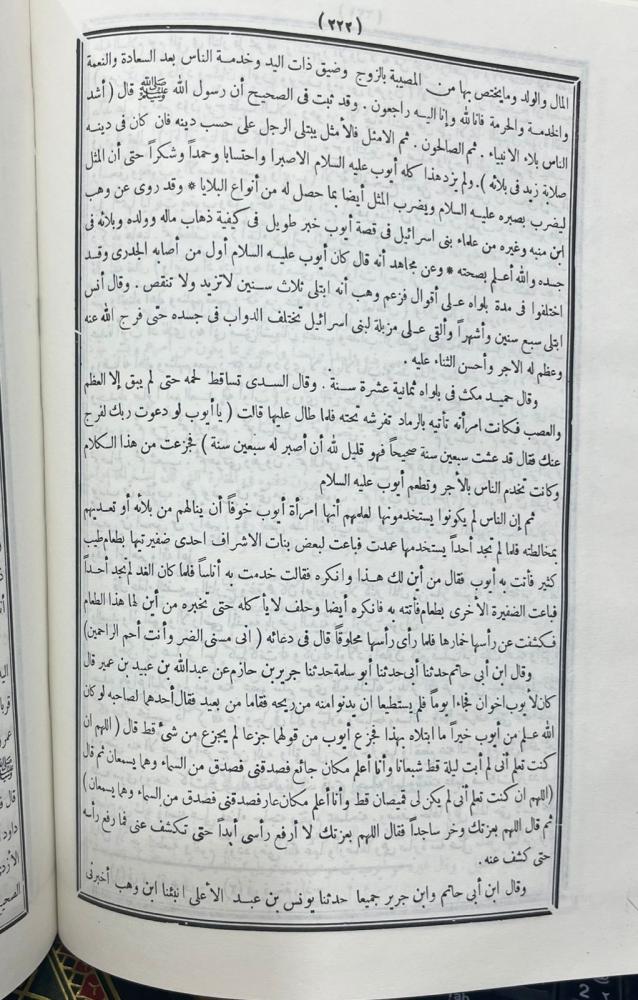 (٢٢٢)
المال والولد وما يختص بها من المصيبة بالزوج وضيق ذات اليد وخدمة الناس بعد السعادة والنعمة
والخدمة والحرمة فانا لله وإنا اليه راجعون . وقد ثبت فى الصحيح أن رسول الله ﷺ قال ( أشد
الناس بلاء الانبياء . ثم الصالحون . ثم الامثل فالأمثل يبتلى الرجل على حسب دينه فان كان فى دينه
صلابة زيد فى بلائه ). ولم يزد هذا كله أيوب عليه السلام الا صبرا واحتسابا وحمداً وشكراً حتى أن المثل
ليضرب بصبره عليه السلام ويضرب المثل أيضا بما حصل له من أنواع البلايا * وقد روى عن وهب
ابن منبه وغيره من علماء بنى اسرائيل فى قصة أيوب خبر طويل فى كيفية ذهاب ماله وولده وبلائه فى
جسده والله أعلم بصحته * وعن مجاهد أنه قال كان أيوب عليه السلام أول من أصابه الجدرى وقد
اختلفوا فى مدة بلواه على أقوال فزعم وهب أنه ابتلى ثلاث سنين لا تزيد ولا تنقص . وقال أنس
ابتلى سبع سنين وأشهراً وألقى على مزبلة لبنى اسرائيل تختلف الدواب فى جسده حتى فرج الله عنه
وعظم له الاجر وأحسن الثناء عليه .
وقال حميد مكث فى بلواه ثمانية عشرة سنة . وقال السدى تساقط لحمه حتى لم يبق إلا العظم
والعصب فكانت امرأته تأتيه بالرماد تفرشه تحته فلما طال عليها قالت ( يا أيوب لو دعوت ربك لفرج
عنك فقال قد عشت سبعين سنة صحيحاً فهو قليل لله أن أصبر له سبعين سنة ) فجزعت من هذا الكلام
وكانت تخدم الناس بالأجر وتطعم أيوب عليه السلام
ثم إن الناس لم يكونوا يستخدمونها لعلمهم أنها امرأة أيوب خوفاً أن ينالهم من بلائه أو تعديهم
بمخالطته فلما لم تجد أحداً يستخدمها عمدت فباعت لبعض بنات الاشراف احدى ضفيرتيها بطعام طيب
كثير فأتت به أيوب فقال من أين لك هذا وانكره فقالت خدمت به أناساً فلما كان الغد لم تجد أحداً
فباعت الضفيرة الأخرى بطعام فأتته به فانكره أيضا وحلف لا يأكله حتى تخبره من أين لها هذا الطعام
فكشفت عن رأسها خمارها فلما رأى رأسها محلوقاً قال فى دعائه ( انى مسنى الضر وأنت أرحم الراحمين)
وقال ابن أبى حاتم حدثنا أبى حدثنا أبو سلمة حدثنا جرير بن حازم عن عبد الله بن عبيد بن عمير قال
كان لأيوب اخوان فجاءا يوماً فلم يستطيعا ان يدنوا منه من ريحه فقاما من بعيد فقال أحدهما لصاحبه لو كان
الله علم من أيوب خيراً ما ابتلاه بهذا فجزع أيوب من قولهما جزعا لم يجزع من شئ قط قال ( اللهم ان
كنت تعلم أنى لم أبت ليلة قط شبعانا وأنا أعلم مكان جائع فصدقنى فصدق من السماء وهما يسمعان ثم قال
(اللهم ان كنت تعلم أنى لم يكن لى قميصان قط وأنا أعلم مكان عار فصدقنى فصدق من السماء وهما يسمعان )
ثم قال اللهم بعزتك وخر ساجداً فقال اللهم بعزتك لا أرفع رأسى أبداً حتى تكشف عنى فما رفع رأسه
حتى كشف عنه .
وقال ابن أبى حاتم وابن جرير جميعا حدثنا يونس بن عبد الأعلى انبئنا ابن وهب أخبرنى